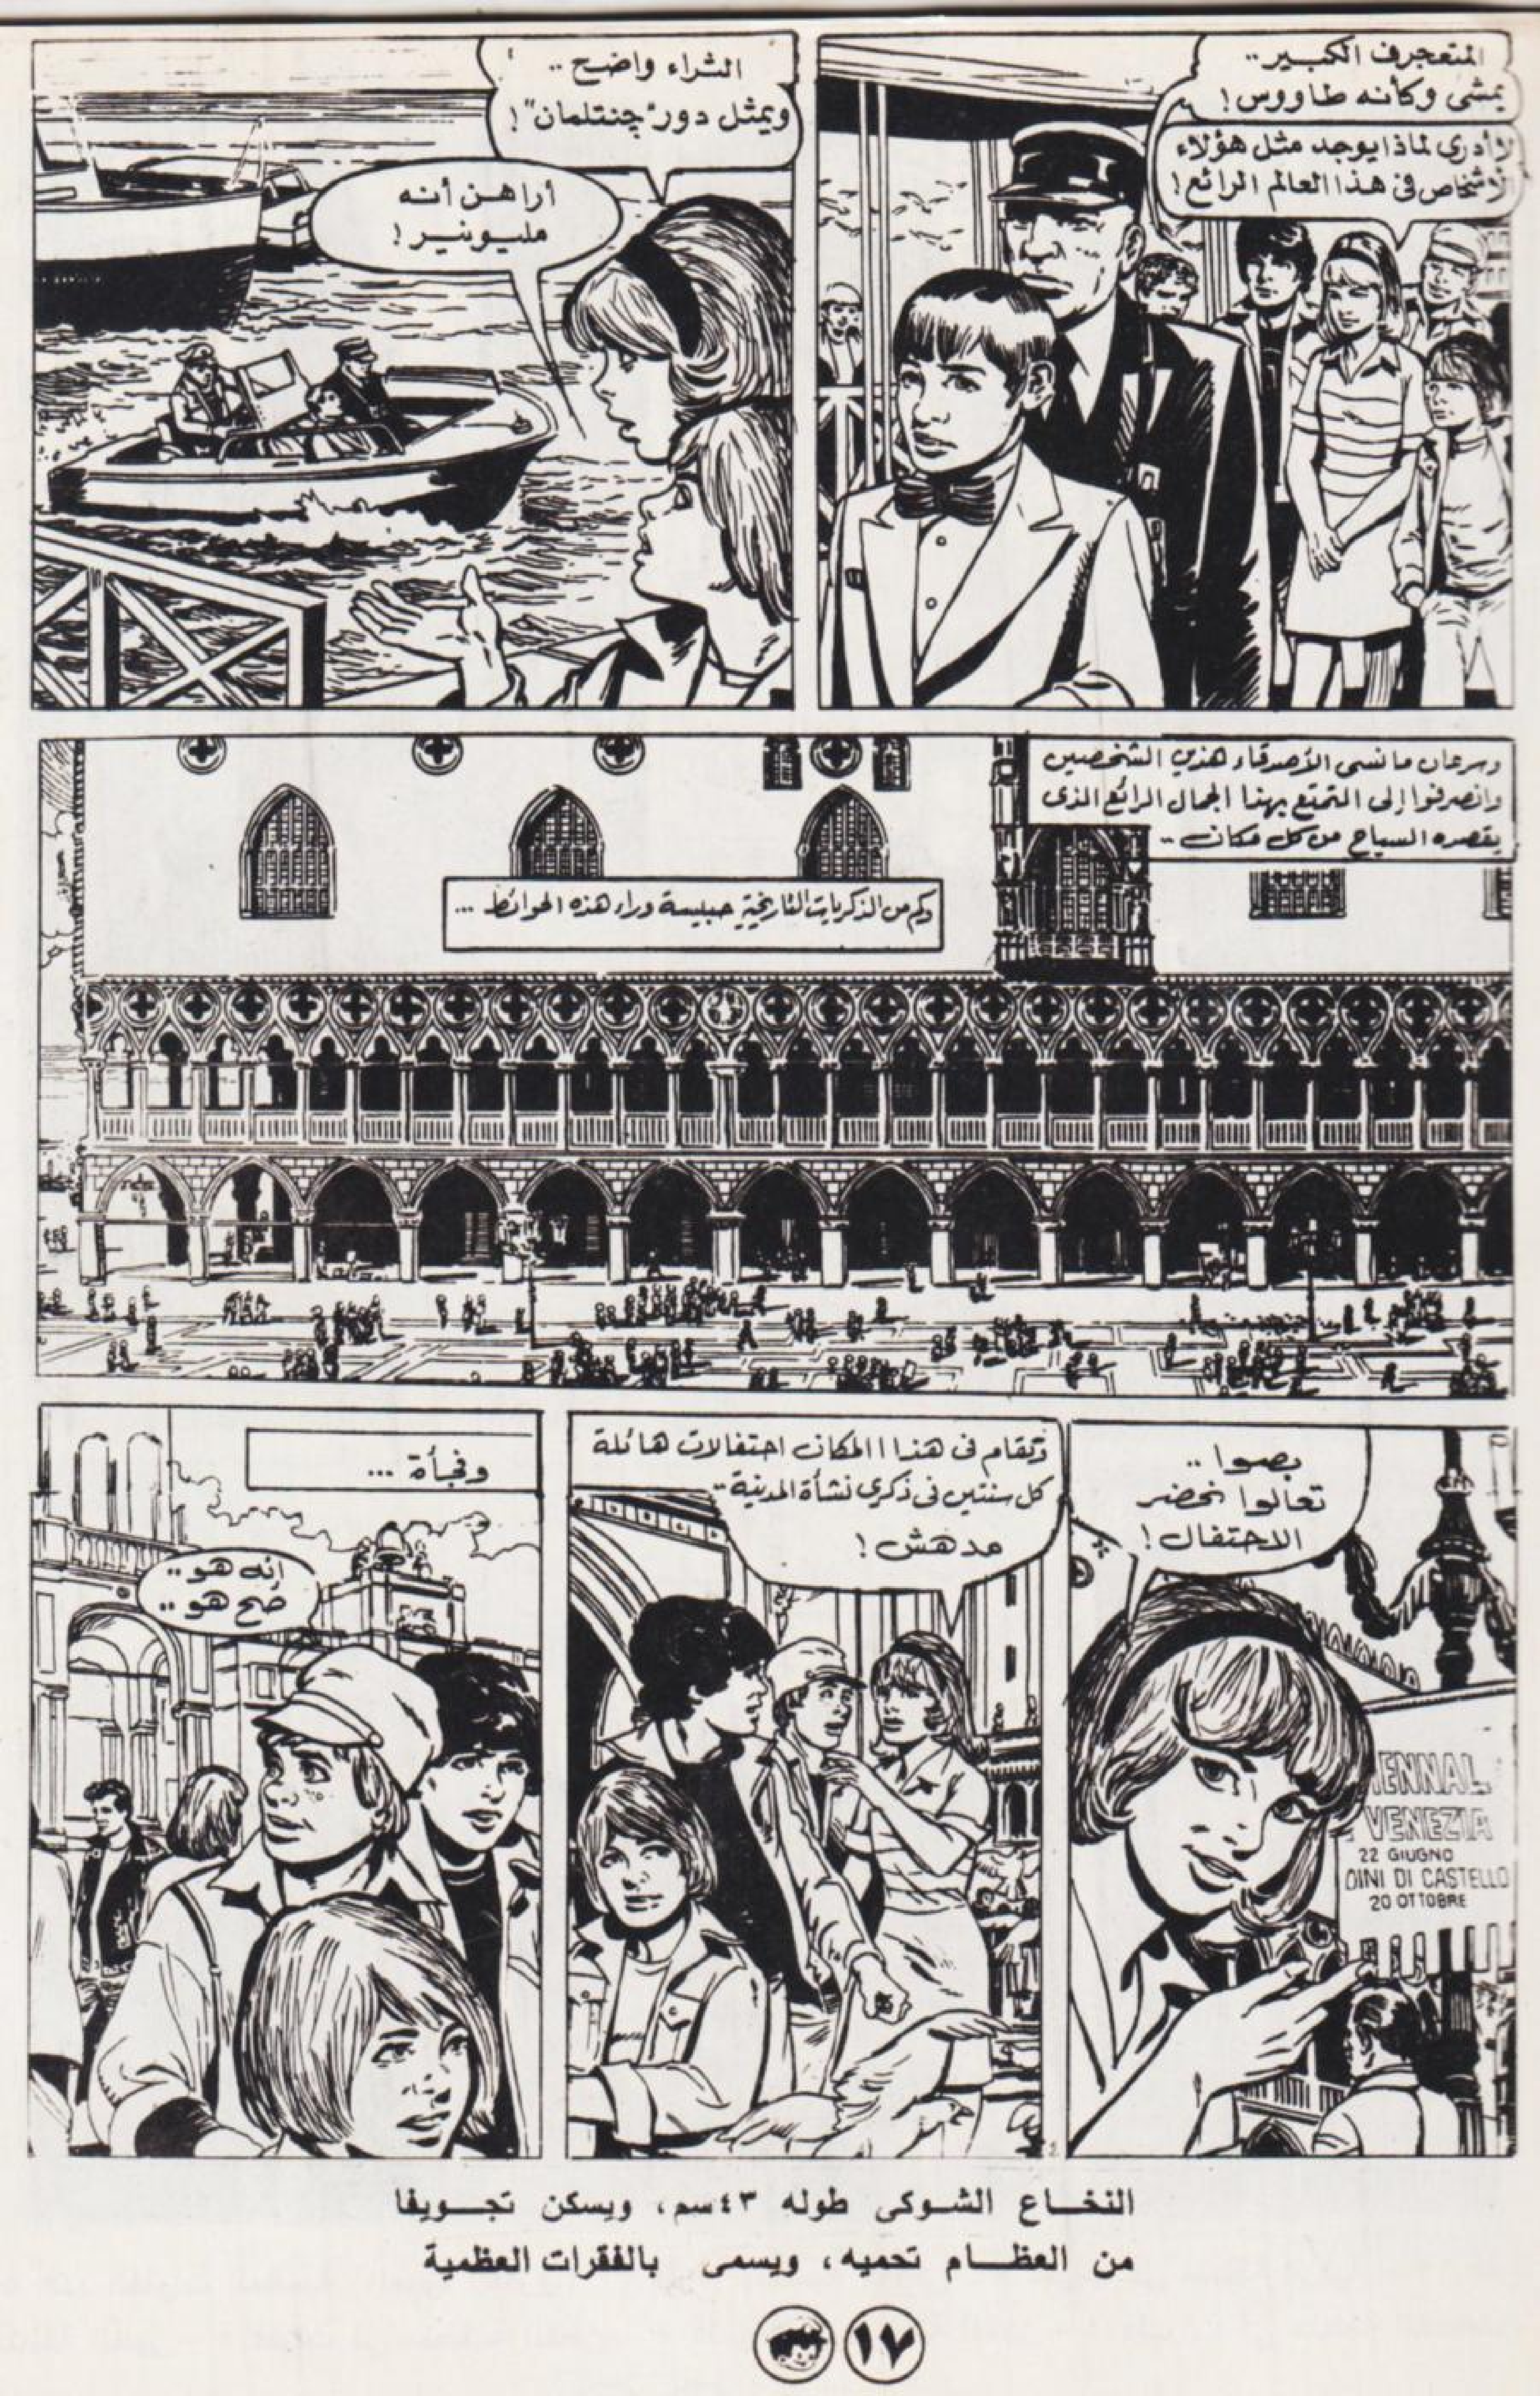 المتعجرف الكبير..
يمشى وكأنه طاووس!
لا أدرى لماذا يوجد مثل هؤلاء
الأشخاص فى هذا العالم الرائع!
الثراء واضح ..
ويمثل دور "چنتلمان"!
أراهن أنه
مليونير!
وسرعان ما نسى الأصدقاء هذين الشخصين
وانصرفوا إلى التمتع بهذا الجمال الرائع الذى
يقصده السياح من كل مكان ..
وكم من الذكريات التاريخية حبيسة وراء هذه الحوائط ...
بصوا ..
تعالوا نحضر
الاحتفال!
IENNAL
VENEZIA
22 GIUGNO
DINI DI CASTELLO
20 OTTOBRE
وتقام فى هذا المكان احتفالات هائلة
كل سنتين فى ذكرى نشأة المدينة ..
مدهش!
وفجأة ...
إنه هو ..
صح هو ..
النخاع الشوكى طوله ٤٣سم، ويسكن تجويفا
من العظام تحميه، ويسمى بالفقرات العظمية
١٧